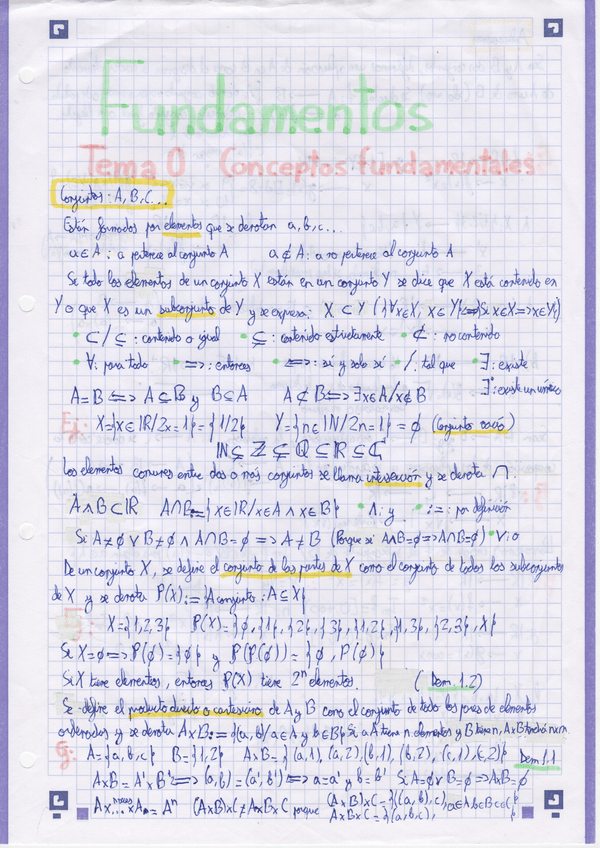 Fundamentos
Tema 0 Conceptos fundamentales
Conjuntos: A, B, C...
Están formados por elementos que se denotan a, b, c...
a ∈ A : a pertenece al conjunto A a ∉ A : a no pertenece al conjunto A
Si todo los elementos de un conjunto X están en un conjunto Y se dice que X está contenido en
Y o que X es un subconjunto de Y y se expresa: X ⊂ Y ({∀x∈X, x∈Y} ⟺ Si x∈X ⟹ x∈Y)
• ⊂/⊆ : contenido o igual • ⊊ : contenido estrictamente • ⊄ : no contenido
• ∀: para todo • ⟹ : entonces • ⟺ : si y solo si • / : tal que • ∃ : existe
A = B ⟺ A ⊆ B y B ⊆ A A ⊄ B ⟺ ∃x∈A/x∉B ∃* : existe un único
Ej: X={x∈ℝ/2x=1}={1/2} Y={n∈ℕ/2n=1}=∅ (Conjunto vacío)
ℕ ⊊ ℤ ⊊ ℚ ⊊ ℝ ⊊ ℂ
Los elementos comunes entre dos o más conjuntos se llama intersección y se denota ∩.
A ∧ B ⊂ ℝ A∩B := {x∈ℝ/x∈A ∧ x∈B} • ∧: y • := : por definición
Si A≠∅ ∨ B≠∅ ∧ A∩B=∅ ⟹ A≠B (Porque si A∩B=∅ ⟹ A∩B=∅) • ∨: o
De un conjunto X, se define el conjunto de las partes de X como el conjunto de todos los subconjuntos
de X y se denota P(X):={A conjunto : A⊆X}
Ej: X={1,2,3} P(X)={∅,{1},{2},{3},{1,2},{1,3},{2,3},X}
Si X=∅ ⟹ P(∅)={∅} y P(P(∅))={∅, P(∅)}
Si X tiene elementos, entonces P(X) tiene 2ⁿ elementos. (Dem 1.2)
Se define el producto directo o cartesiano de A y B como el conjunto de todo los pares de elementos
ordenados y se denota AxB:={(a,b)/a∈A y b∈B} Si A tiene n elementos y B tiene m, AxB tendrá n·m.
Ej: A={a,b,c} B={1,2} AxB={(a,1),(a,2),(b,1),(b,2),(c,1),(c,2)} Dem 1.1
AxB = A'xB' ⟺ (a,b)=(a',b') ⟺ a=a' y b=b' Si A=∅ ∨ B=∅ ⟹ AxB=∅
Ax...xA = Aⁿ (AxB)xC ≠ AxBxC porque (AxB)xC={((a,b),c), a∈A b∈B c∈C}
AxBxC={(a,b,c),